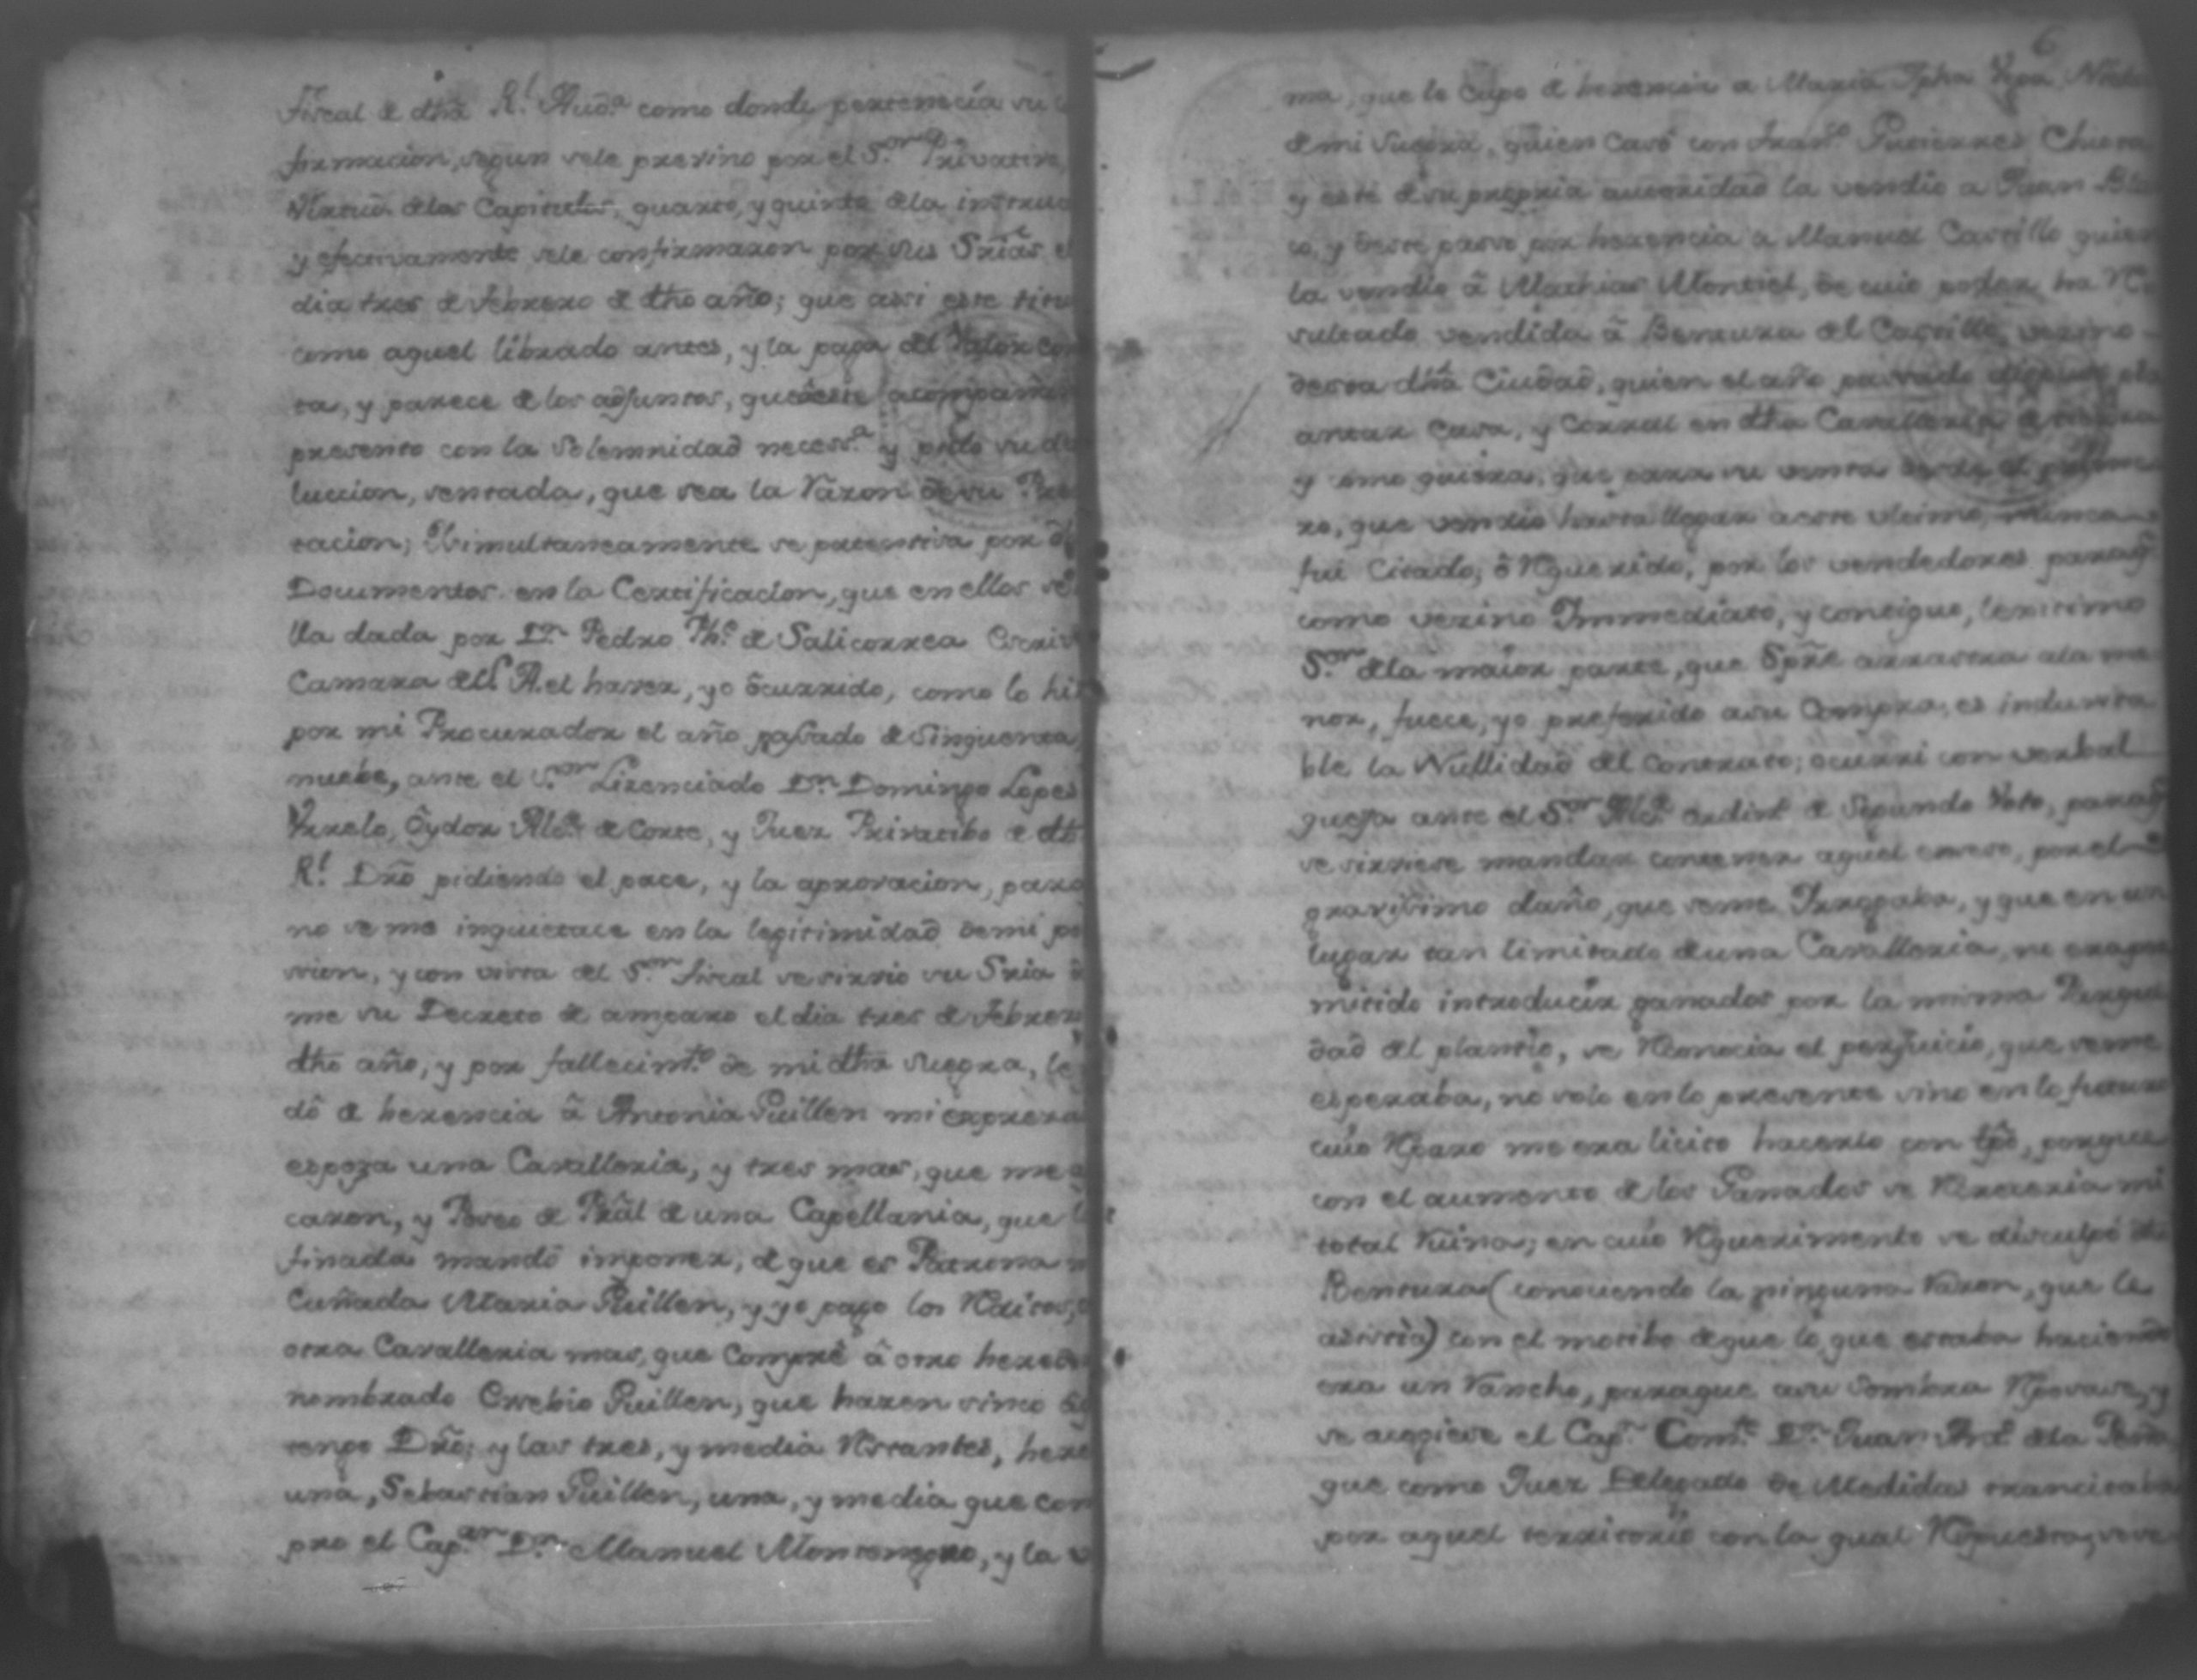 Fiscal de dha Rl. Auda. como donde pertenecia su
formacion, segun sele previno por el Sor. Privativo
Virtud delos Capitulos, quarto, y quinto dela instruc
y efectivamente sele confirmaron por sus Srias el
dia tres de Febrero de dho año; que assi este titu
como aquel librado antes, y la paga del Valor con
ta, y parece de los adjuntos, que
presento con la Solemnidad necesra. y pido su de
lucion, sentada, que sea la Razon de su Pre
tacion; simultaneamente se patentiza por dh
Documentos en la Certificacion, que en ellos se
lla dada por Dn. Pedro Pho. de Salicorrea Escriv
Camara del el haver, yo ôcurrido, como lo hi
por mi Procurador el año pasado de sinquenta
nuebe, ante el Sor. Lizenciado Dn. Domingo Lopes
Urrelo, Ôydor Alce. de Corte, y Juez Privatibo de dh
Rl. Dro pidiendo el pace, y la aprovacion, para
no se me inquietace en la legitimidad de mi po
sesion, y con vista del Sor. fiscal se sirvio su Sria
me su Decreto de amparo el dia tres de Febrero
dho año, y por fallecimto. de mi dha suegra, le
dô de herencia â Antonia Guillen mi expresa
espoza una Cavalleria, y tres mas, que me
caron, y Poseo de Pral de una Capellania, que
finada mandô imponer, de que es Patrona
Cuñada Maria Guillen, y yo pago los Reditos,
otra Cavalleria mas, que Comprê â otro herede
nombrado Eusebio Guillen, que hazen sinco
tengo Dro; y las tres, y media Restantes, here
una, Sebastian Guillen, una, y media que com
pro el Capan. Dn. Manuel Montenegro, y la
6
ma, que le Cupo de herencia a Maria Jpha
de mi suegra, quien Casô con Franco. Gutierres
y este de su propria autoridad la vendio a Juan
co, y deste passo por herencia a Manuel Castillo quien
la vendio â Mathias Montiel, de cuio poder ha Re
sultado vendida â Bentura del Castillo, vezino
desta dha Ciudad, quien el año passado
antar Casa, y Corral en dha Cavalleria de tierra
y como quiera, que para su venta desde el prime
ro, que vendio hasta llegar a este ultimo, nunca
fui Citado, ô Requerido, por los vendedores paraq.
como vezino Immediato, y contiguo, lexitimo
Sor. dela maior parte, que Spre arrastra ala me
nor, fuece, yo preferido asu Compra, es indubita
ble la Nullidad del Contrato; ocurri con verbal
quexa ante el Sor. Alce. ordino. de Segundo Voto, paraq.
se sirviese mandar contener aquel exceso, por el
gravissimo daño, que seme Irrogaba, y que en un
lugar tan limitado de una Cavalleria, ni era per
mitido introducir ganados por la misma
dad del plantio, se Reconocia el perjuicio, que seme
esperaba, no solo en lo presente sino en lo futuro
cuio Reparo me era licito hacerlo con tpo, porque
con el aumento de los Ganados se mi
total Ruina; en cuio Requerimento se disculpô dho
Bentura (conociendo la ninguna Razon, que le
asistia) con el motibo de que lo que estaba haciendo
era un Rancho, paraque asu Sombra Reposase, y
se acogiese el Capn. Comte. Dn. Juan Anto. dela
que como Juez Delegado de Medidas trancitaba
por aquel territorio con la qual Repuesta, se